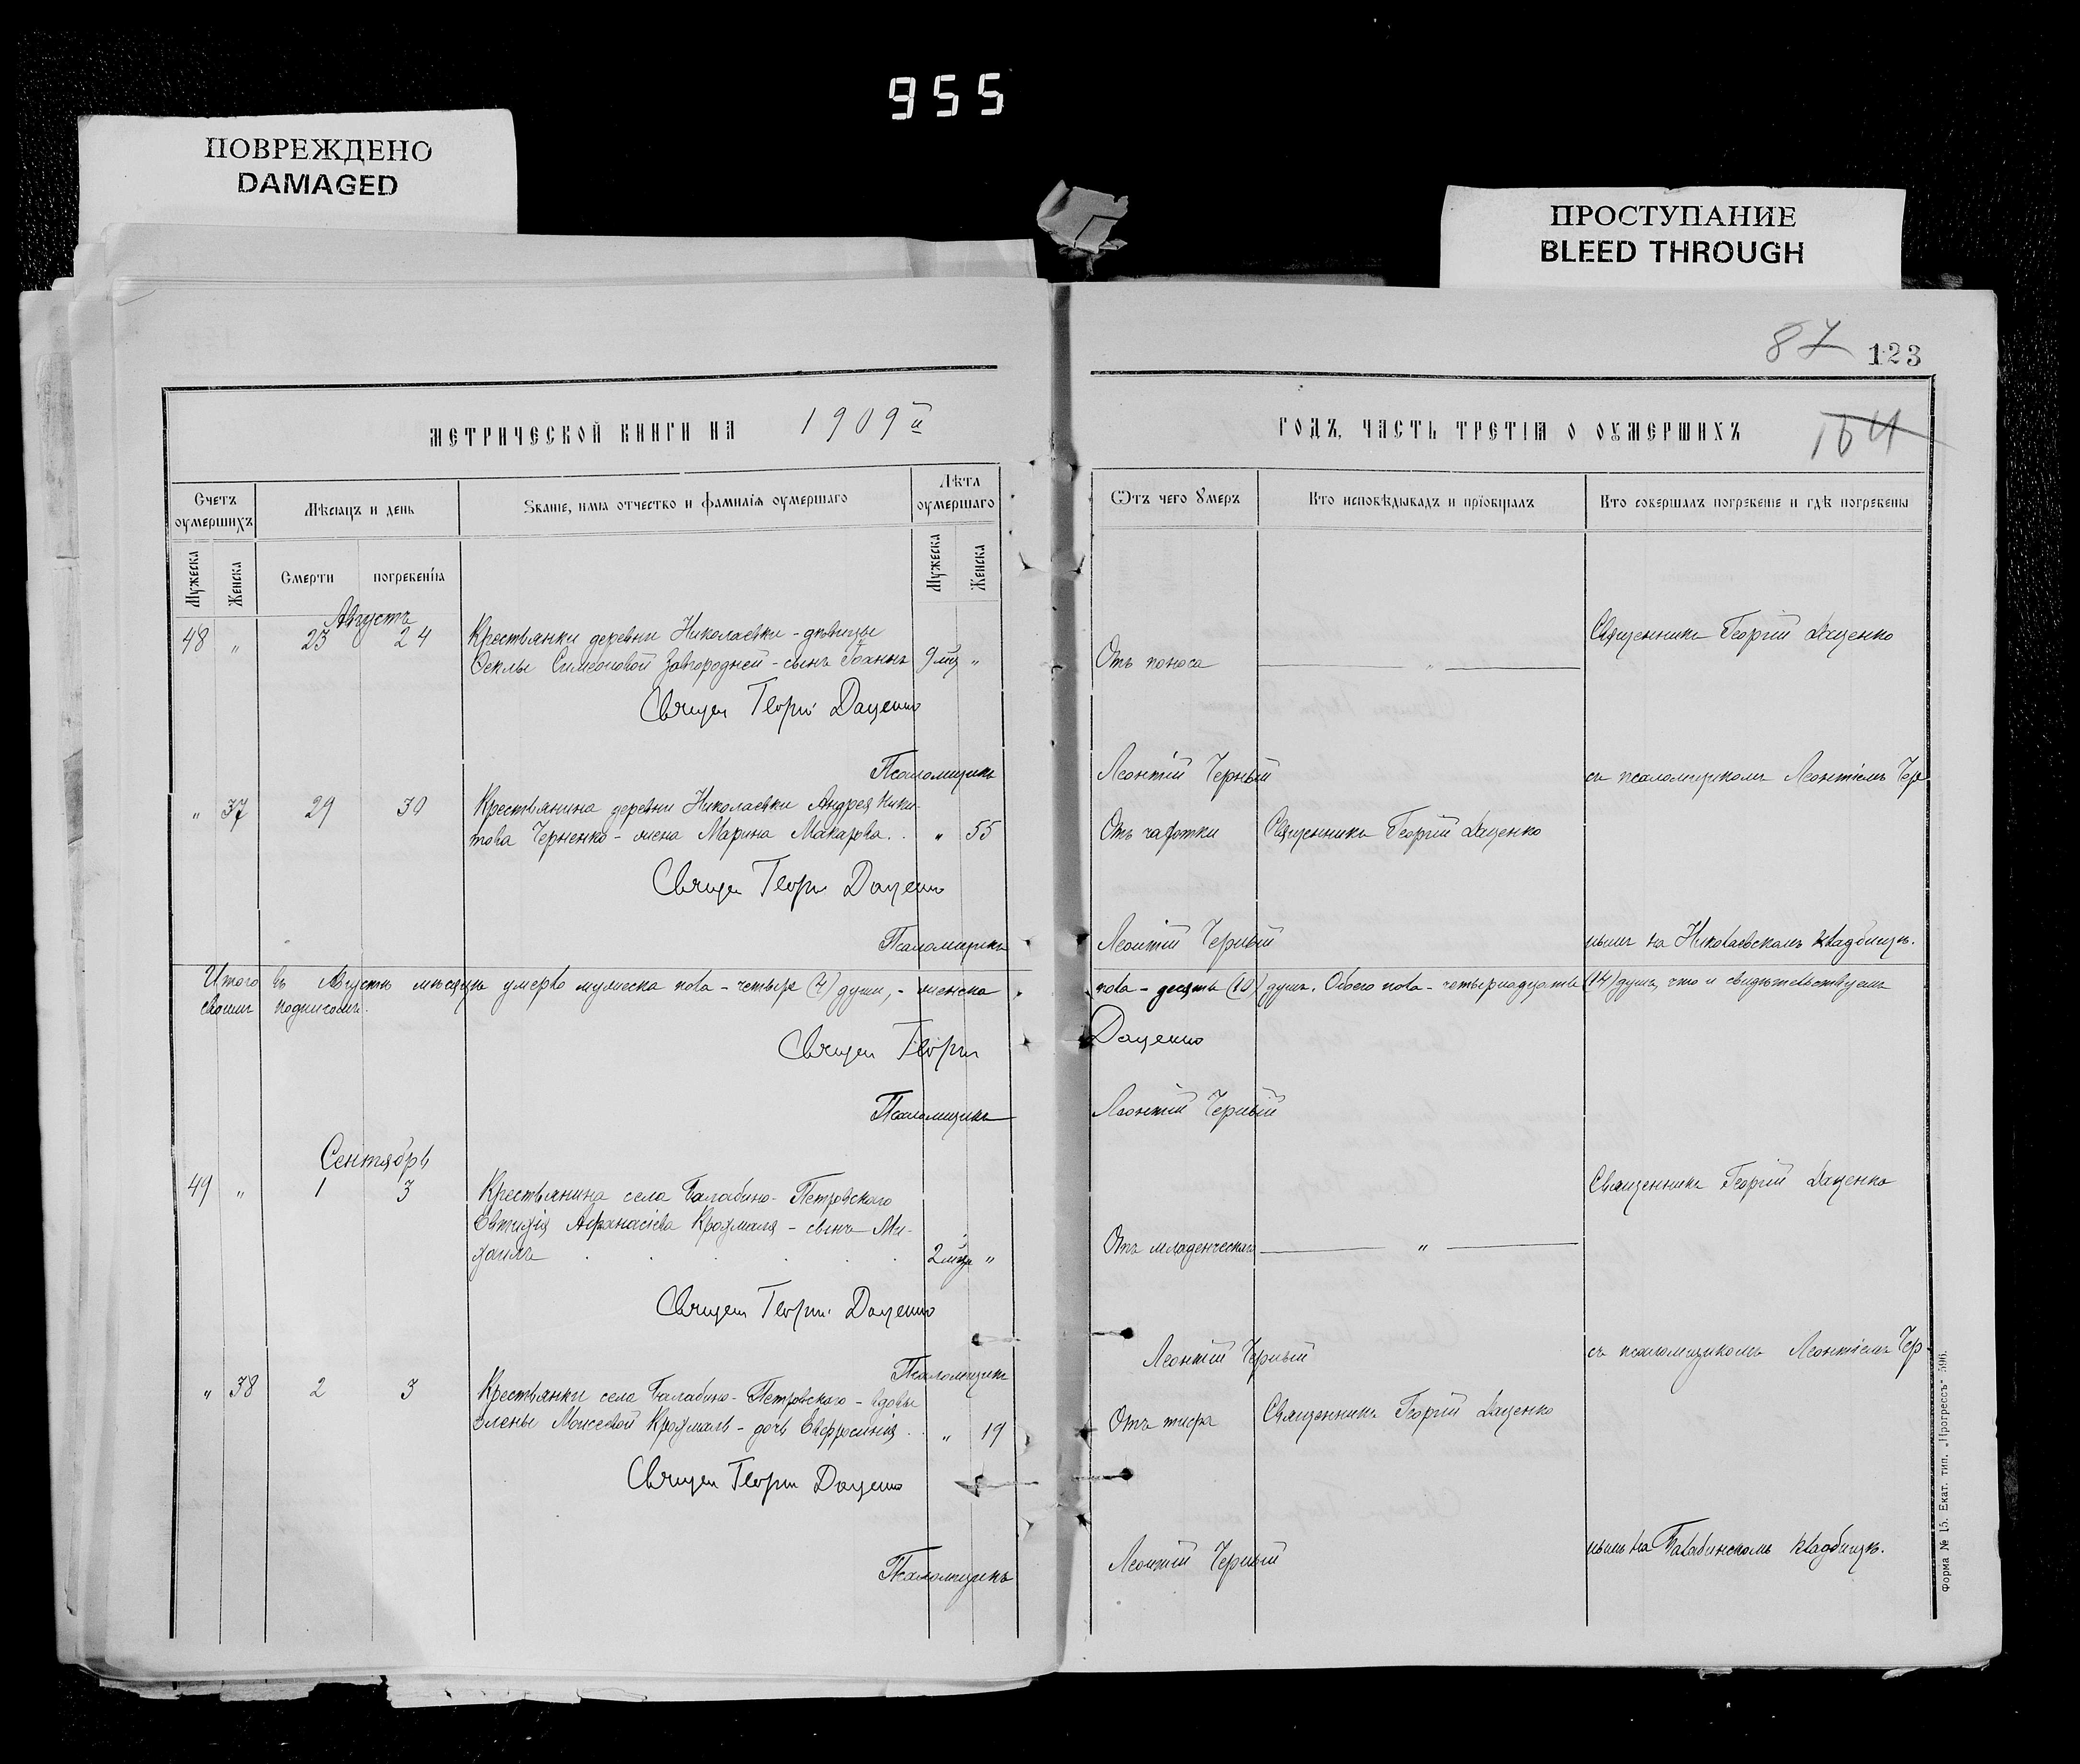 955
ПОВРЕЖДЕНО
DAMAGED
ПРОСТУПАНИЕ
BLEED THROUGH
87 123
МЕТРИЧЕСКОЙ КНИГИ НА 1909й
ГОДЪ, ЧАСТЬ ТРЕТІЯ О ОУМЕРШИХЪ
164
Счетъ оумершихъ
Мѣсяцъ и день
Званіе, имя отчество и фамилія оумершаго
Лѣта оумершаго
Ѿтъ чего оумеръ
Кто исповѣдывалъ и пріобщалъ
Кто совершалъ погребеніе и гдѣ погребены
Мужеска
Женска
Смерти
погребенія
Мужеска
Женска
Августъ
48 " 23 24
Крестьянки деревни Николаевки - дѣвицы
Ѳеклы Симеоновой Завгородней - сынъ Іоаннъ 9 мц "
Отъ поноса
"
Священникъ Георгій Даценко
Священ Георгій Даценко
Псаломщикъ Леонтій Черный
съ псаломщикомъ Леонтіемъ Чер
" 37 29 30
Крестьянина деревни Николаевки Андрея Ники-
това Черненко - жена Марина Макарова. " 55
Отъ чахотки
Священникъ Георгій Даценко
Священ Георгій Даценко
Псаломщикъ Леонтій Черный
нымъ на Николаевскомъ кладбищѣ.
Итого въ Августѣ мѣсяцѣ умерло мужеска пола - четыре (4) души, - женска пола - десять (10) душъ. Обоего пола - четырнадцать (14) душъ, что и свидѣтельствуемъ
своимъ подписомъ.
Священ Георгій Даценко
Псаломщикъ Леонтій Черный
Сентябрь
49 " 1 3
Крестьянина села Балабино-Петровского
Евтихія Аѳанасіева Крохмаля - сынъ Ми-
хаилъ 2 мца "
Отъ младенческаго
"
Священникъ Георгій Даценко
Священ Георгій Даценко
Псаломщикъ Леонтій Черный
съ псаломщикомъ Леонтіемъ Чер-
" 38 2 3
Крестьянки села Балабино-Петровского - вдовы
Елены Моисеевой Крохмаль - дочь Евфросинія " 19
Отъ тифа
Священникъ Георгій Даценко
Священ Георгій Даценко
Псаломщикъ Леонтій Черный
нымъ на Балабинскомъ кладбищѣ.
Форма № 15. Екат. тип. „Прогрессъ" 596.